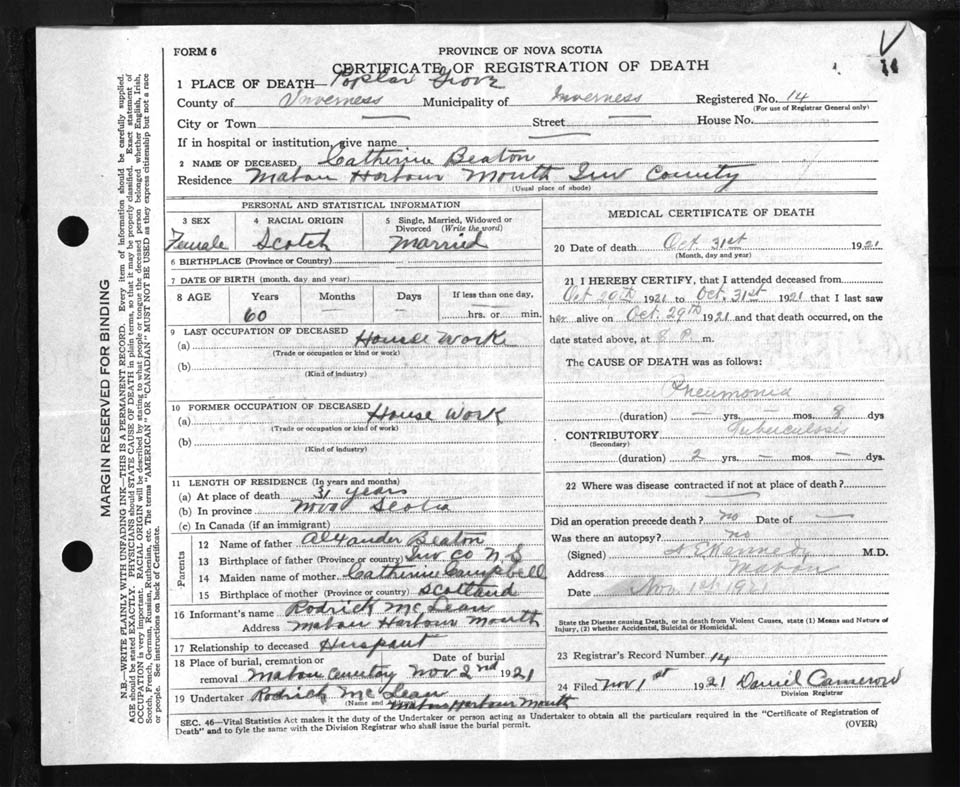 FORM 6
PROVINCE OF NOVA SCOTIA
CERTIFICATE OF REGISTRATION OF DEATH
1 PLACE OF DEATH— Poplar Grove
County of Inverness Municipality of Inverness Registered No. 14
(For use of Registrar General only)
City or Town — Street — House No.
If in hospital or institution, give name —
2 NAME OF DECEASED Catherine Beaton
Residence Mabou Harbour Mouth Inv County
(Usual place of abode)
PERSONAL AND STATISTICAL INFORMATION
3 SEX 4 RACIAL ORIGIN 5 Single, Married, Widowed or Divorced (Write the word)
Female Scotch Married
6 BIRTHPLACE (Province or Country)
7 DATE OF BIRTH (month, day and year)
8 AGE Years Months Days If less than one day,
60 — — hrs. or min.
9 LAST OCCUPATION OF DECEASED
(a) House Work
(Trade or occupation or kind or work)
(b)
(Kind of industry)
10 FORMER OCCUPATION OF DECEASED
(a) House Work
(Trade or occupation or kind of work)
(b)
(Kind of industry)
11 LENGTH OF RESIDENCE (In years and months)
(a) At place of death 31 years
(b) In province Nova Scotia
(c) In Canada (if an immigrant)
Parents
12 Name of father Alexander Beaton
13 Birthplace of father (Province or country) Inv Co N S
14 Maiden name of mother Catherine Campbell
15 Birthplace of mother (Province or country) Scotland
16 Informant's name Rodrick McLean
Address Mabou Harbour Mouth
17 Relationship to deceased Huspant
18 Place of burial, cremation or removal Mabou Cemetery Date of burial Nov 2nd 1921
19 Undertaker Rodrick McLean
(Name and
Mabou Harbour Mouth
MEDICAL CERTIFICATE OF DEATH
20 Date of death Oct. 31st 1921
(Month, day and year)
21 I HEREBY CERTIFY, that I attended deceased from
Oct 20th 1921 to Oct. 31st 1921 that I last saw
her alive on Oct. 29th 1921 and that death occurred, on the
date stated above, at 8 P. m.
The CAUSE OF DEATH was as follows:
Pneumonia
(duration) — yrs. — mos. 8 dys
CONTRIBUTORY Tuberculosis
(Secondary)
(duration) 2 yrs. — mos. — dys.
22 Where was disease contracted if not at place of death?
Did an operation precede death? no Date of —
Was there an autopsy? no
(Signed) Kennedy M.D.
Address Mabou
Date Nov 1st 1921
State the Disease causing Death, or in death from Violent Causes, state (1) Means and Nature of
Injury, (2) whether Accidental, Suicidal or Homicidal.
23 Registrar's Record Number 14
24 Filed Nov 1st 1921 Daniel Cameron
Division Registrar
SEC. 46—Vital Statistics Act makes it the duty of the Undertaker or person acting as Undertaker to obtain all the particulars required in the "Certificate of Registration of
Death" and to fyle the same with the Division Registrar who shall issue the burial permit.
(OVER)
MARGIN RESERVED FOR BINDING
N.B.—WRITE PLAINLY WITH UNFADING INK—THIS IS A PERMANENT RECORD. Every item of information should be carefully supplied.
AGE should be stated EXACTLY. PHYSICIANS should STATE CAUSE OF DEATH in plain terms, so that it may be properly classified. Exact statement of
OCCUPATION is very important. RACIAL ORIGIN will be described by stating to what people or tongue the deceased person belonged whether English, Irish,
Scotch, French, German, Russian, Ruthenian, etc. The terms "AMERICAN" OR "CANADIAN" MUST NOT BE USED as they express citizenship but not a race
or people. See instructions on back of Certificate.